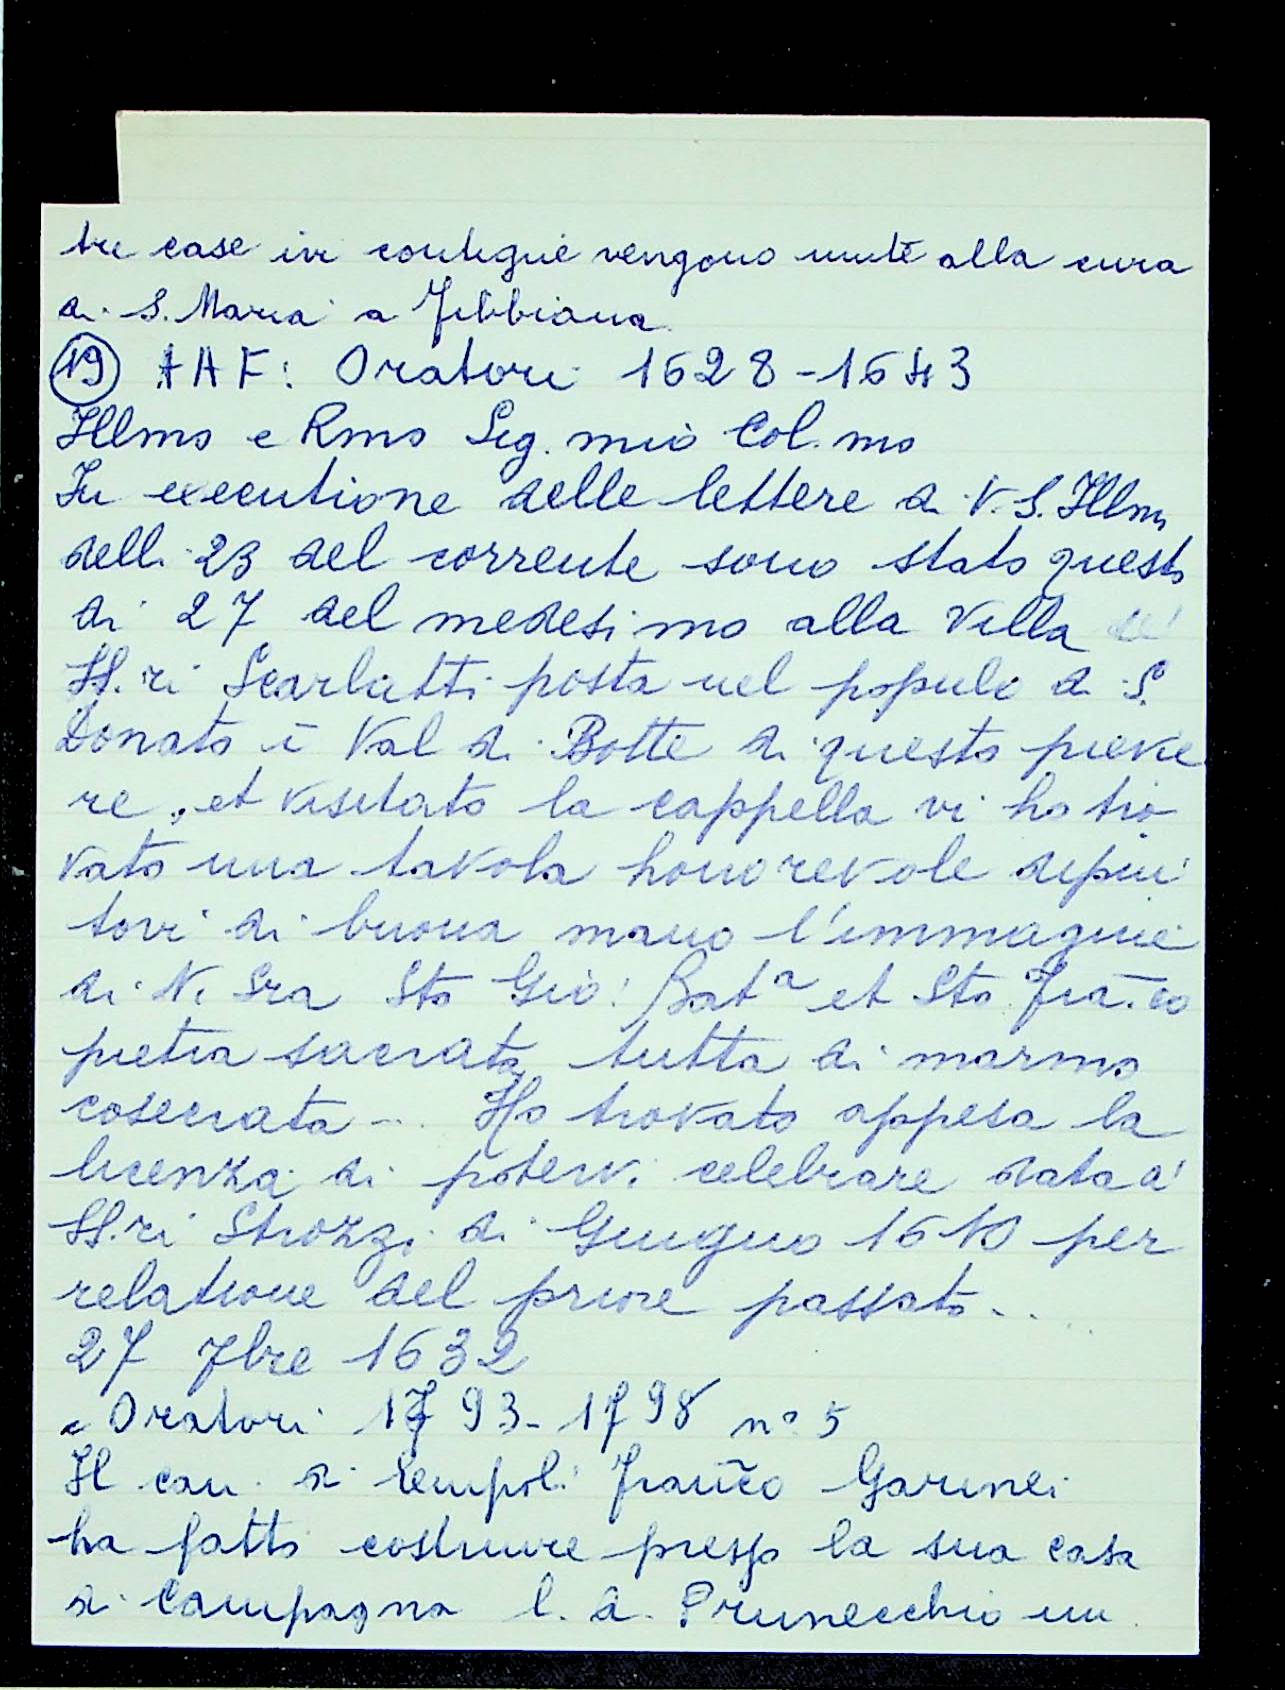 tre case ivi contigue vengono unite alla cura
di S. Maria a Fibbiana
(19) AAF: Oratori 1628-1643
Illmo e Rmo Sig. mio Col.mo
In executione delle lettere di V.S. Illma
delli 23 del corrente sono stato questo
di 27 del medesimo alla Villa de'
SS.ri Scarlatti posta nel populo di S.
Donato ī Val di Botte di questo pievie
re, et visitato la cappella vi ho tro
vato una tavola honorevole depin
tovi di buona mano l'immagine
di N. Sra Sto Gio: Bat.a et Sto Frā.co
pietra sacrata tutta di marmo
cosecrata... Ho trovato appesa la
licenza di potervi celebrare data a'
SS.ri Strozzi di Giugno 1610 per
relatione del priore passato...
27 7bre 1632
e Oratori 1793-1798 n° 5
Il can. di Empoli Frañco Garinei
ha fatto costruire presso la sua casa
di Campagna l. d. Prunecchio un